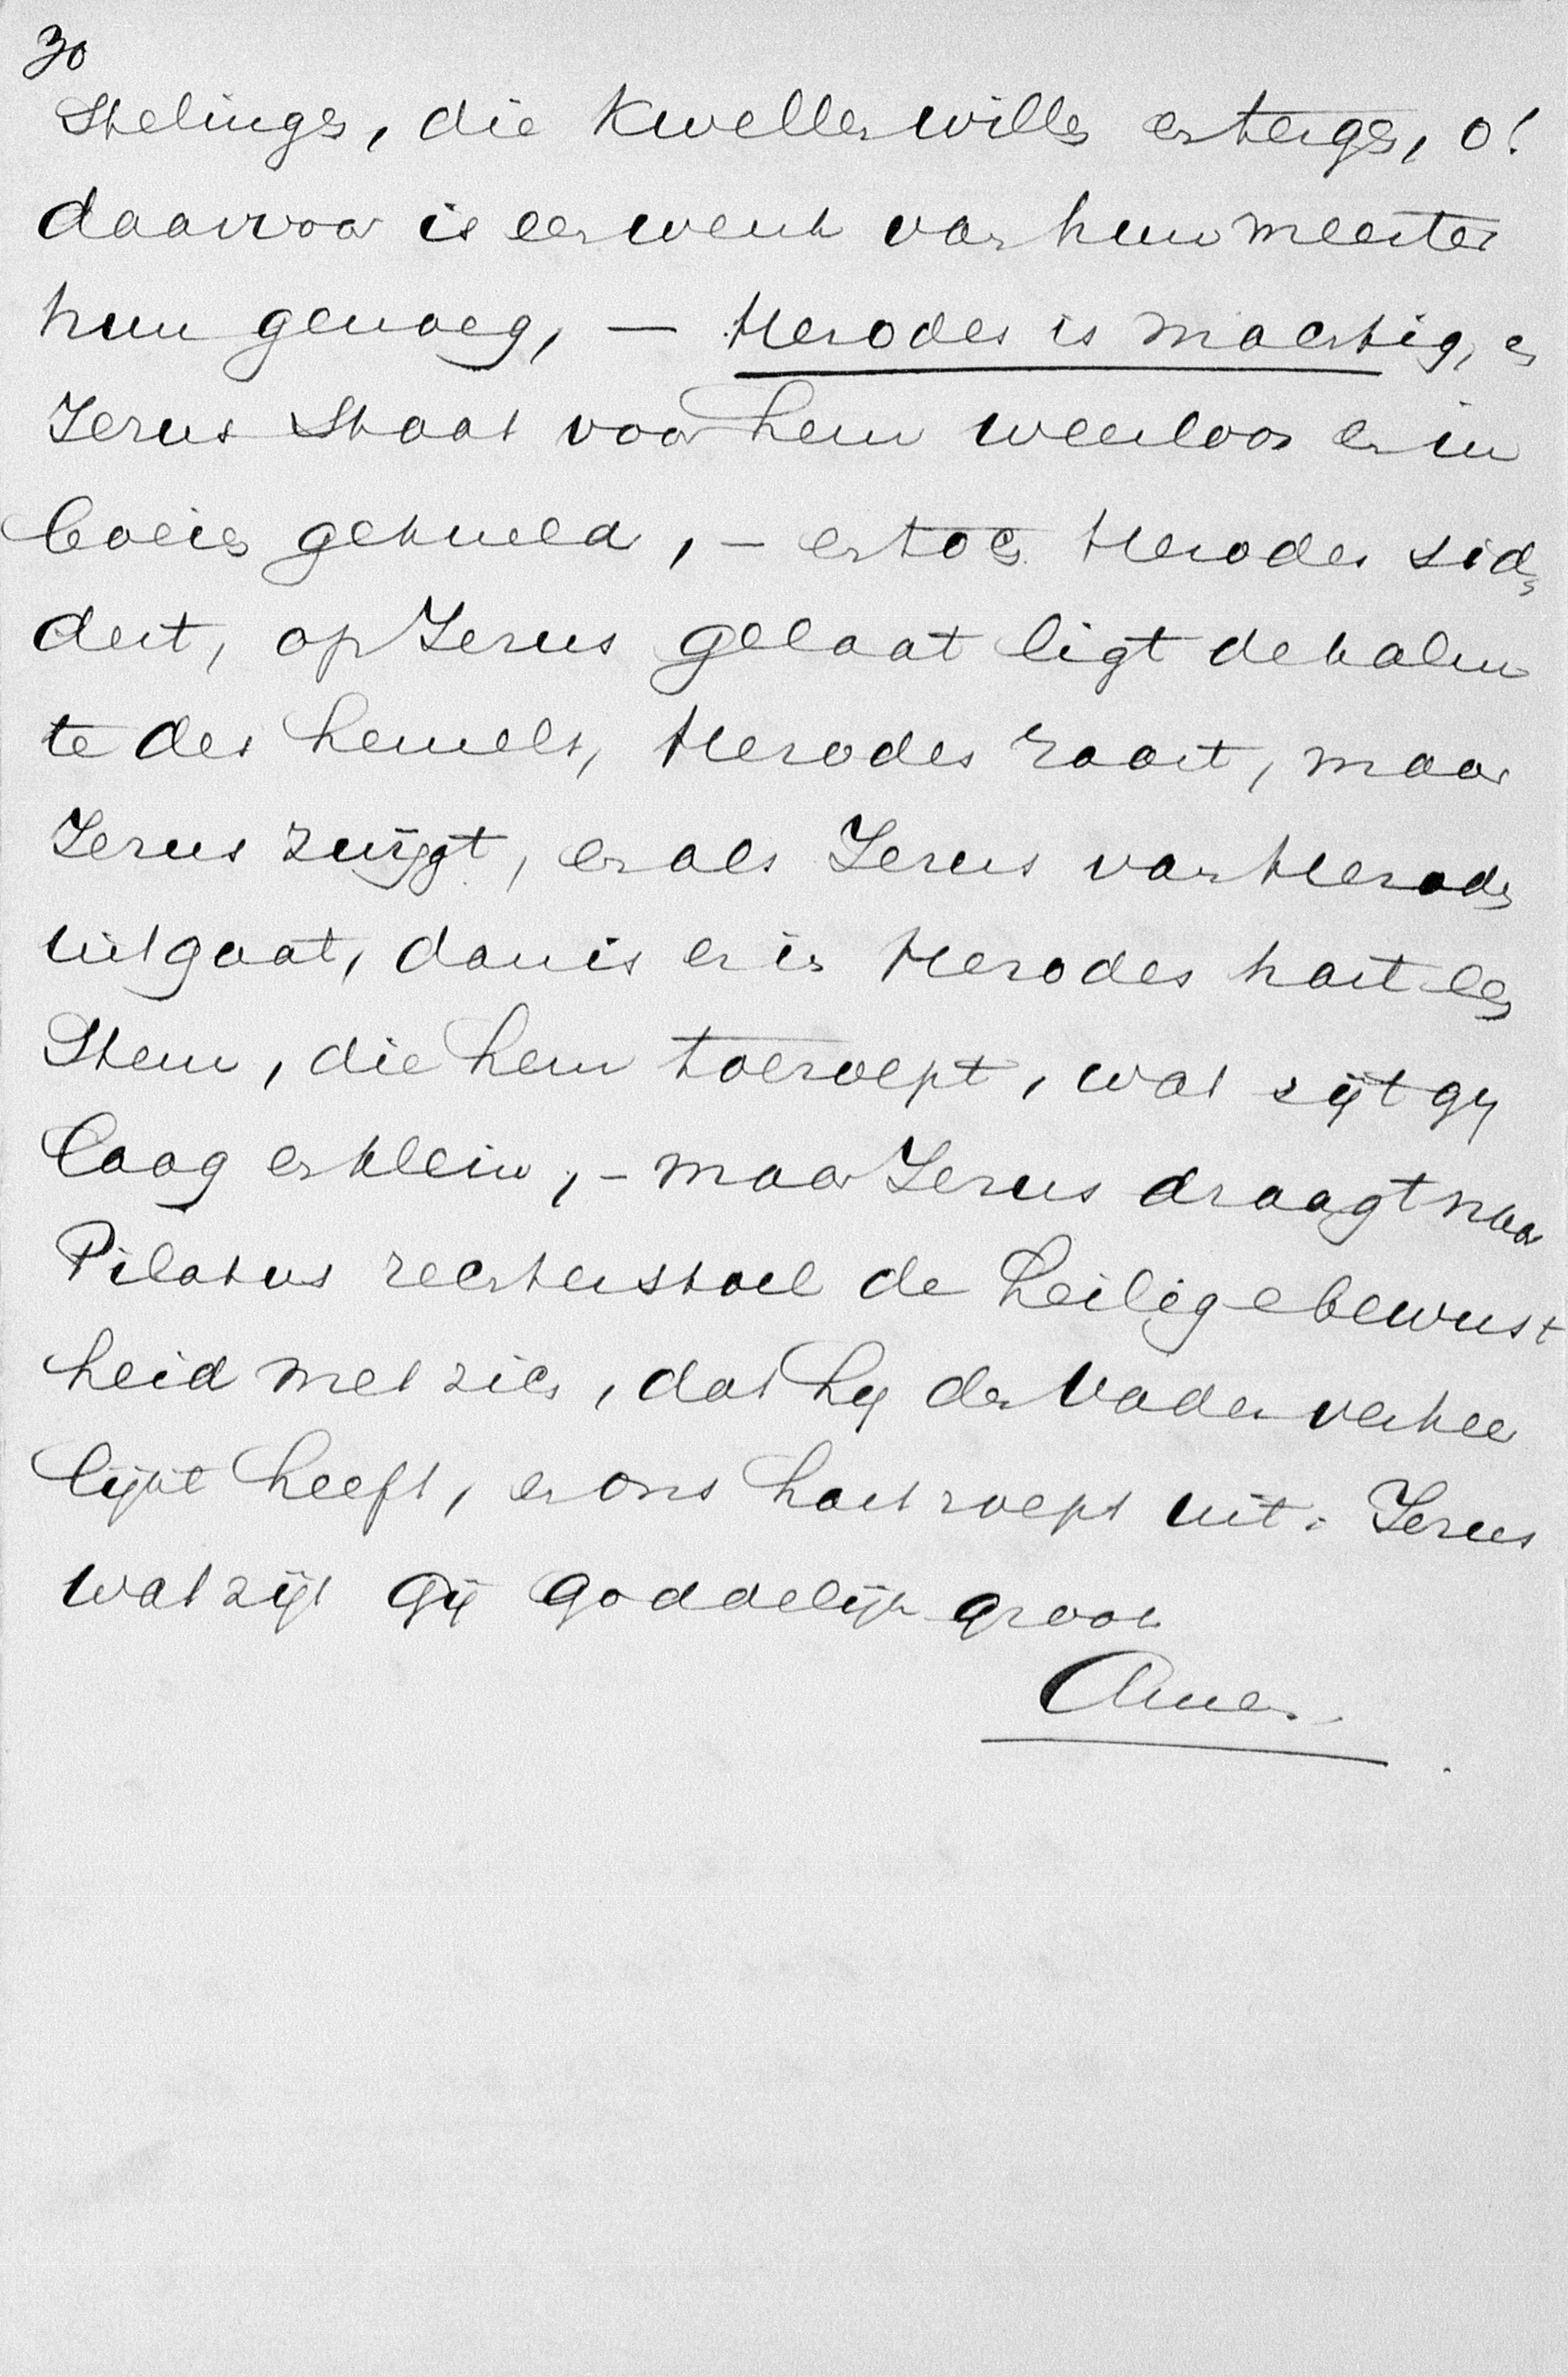 30
Stelingen, die kwellen willen en tergen, o!
daarvoor is een wenk van hun meester
hun genoeg, — Herodes is machtig, en
Jezus staat voor hem weerloos en in
boeien gekneld, – en toch Herodes sid„
dert, op Jezus gelaat ligt de kalm
te des hemels, Herodes raast, maar
Jezus zwijgt, en als Jezus van Herodes
uitgaat, dan is er in Herodes hart een
Stem, die hem toeroept, wat zijt gij
laag en klein, – maar Jezus draagt naar
Pilatus rechterstoel de heilige bewust
heid met zich, dat hij den Vader verheer
lijkt heeft, en ons hart roept uit: Jezus
wat zijt Gij Goddelijk groot
Amen.